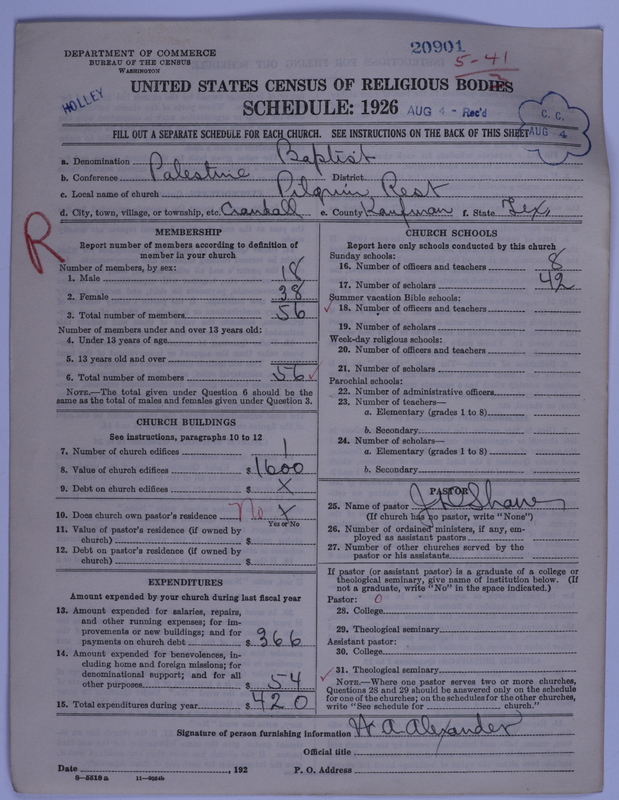 DEPARTMENT OF COMMERCE
BUREAU OF THE CENSUS
WASHINGTON
20901
5-41
HOLLEY
UNITED STATES CENSUS OF RELIGIOUS BODIES
SCHEDULE: 1926
AUG 4 - Rec'd
C. C.
AUG 4
FILL OUT A SEPARATE SCHEDULE FOR EACH CHURCH. SEE INSTRUCTIONS ON THE BACK OF THIS SHEET
a. Denomination Baptist
b. Conference Palestine District
c. Local name of church Pilgrim Rest
d. City, town, village, or township, etc. Crandall e. County Kaufman f. State Tex,
R
MEMBERSHIP
Report number of members according to definition of
member in your church
Number of members, by sex:
1. Male 18
2. Female 38
3. Total number of members 56
Number of members under and over 13 years old:
4. Under 13 years of age
5. 13 years old and over
6. Total number of members 56 ✓
NOTE.—The total given under Question 6 should be
same as the total of males and females given under Question 3.
CHURCH BUILDINGS
See instructions, paragraphs 10 to 12
7. Number of church edifices 1
8. Value of church edifices $ 1600
9. Debt on church edifices $ X
10. Does church own pastor's residence No X
Yes or No
11. Value of pastor's residence (if owned by
church) $
12. Debt on pastor's residence (if owned by
church) $
EXPENDITURES
Amount expended by your church during last fiscal year
13. Amount expended for salaries, repairs,
and other running expenses; for im-
provements or new buildings; and for
payments on church debt $ 366
14. Amount expended for benevolences, in-
cluding home and foreign missions; for
denominational support; and for all
other purposes $ 54
15. Total expenditures during year $ 420
CHURCH SCHOOLS
Report here only schools conducted by this church
Sunday schools:
16. Number of officers and teachers 8
17. Number of scholars 42
Summer vacation Bible schools:
✓ 18. Number of officers and teachers
19. Number of scholars
Week-day religious schools:
20. Number of officers and teachers
21. Number of scholars
Parochial schools:
22. Number of administrative officers
23. Number of teachers—
a. Elementary (grades 1 to 8)
b. Secondary
24. Number of scholars—
a. Elementary (grades 1 to 8)
b. Secondary
PASTOR
25. Name of pastor Shaw
(If church has no pastor, write "None")
26. Number of ordained ministers, if any, em-
ployed as assistant pastors
27. Number of other churches served by the
pastor or his assistants
If pastor (or assistant pastor) is a graduate of a college or
theological seminary, give name of institution below. (If
not a graduate, write "No" in the space indicated.)
Pastor: 0
28. College
29. Theological seminary
Assistant pastor:
30. College
✓ 31. Theological seminary
NOTE.—Where one pastor serves two or more churches,
Questions 28 and 29 should be answered only on the schedule
for one of the churches; on the schedules for the other churches,
write "See schedule for church."
Signature of person furnishing information W. A. Alexander
Official title
Date , 192 P. O. Address
8-5518 a